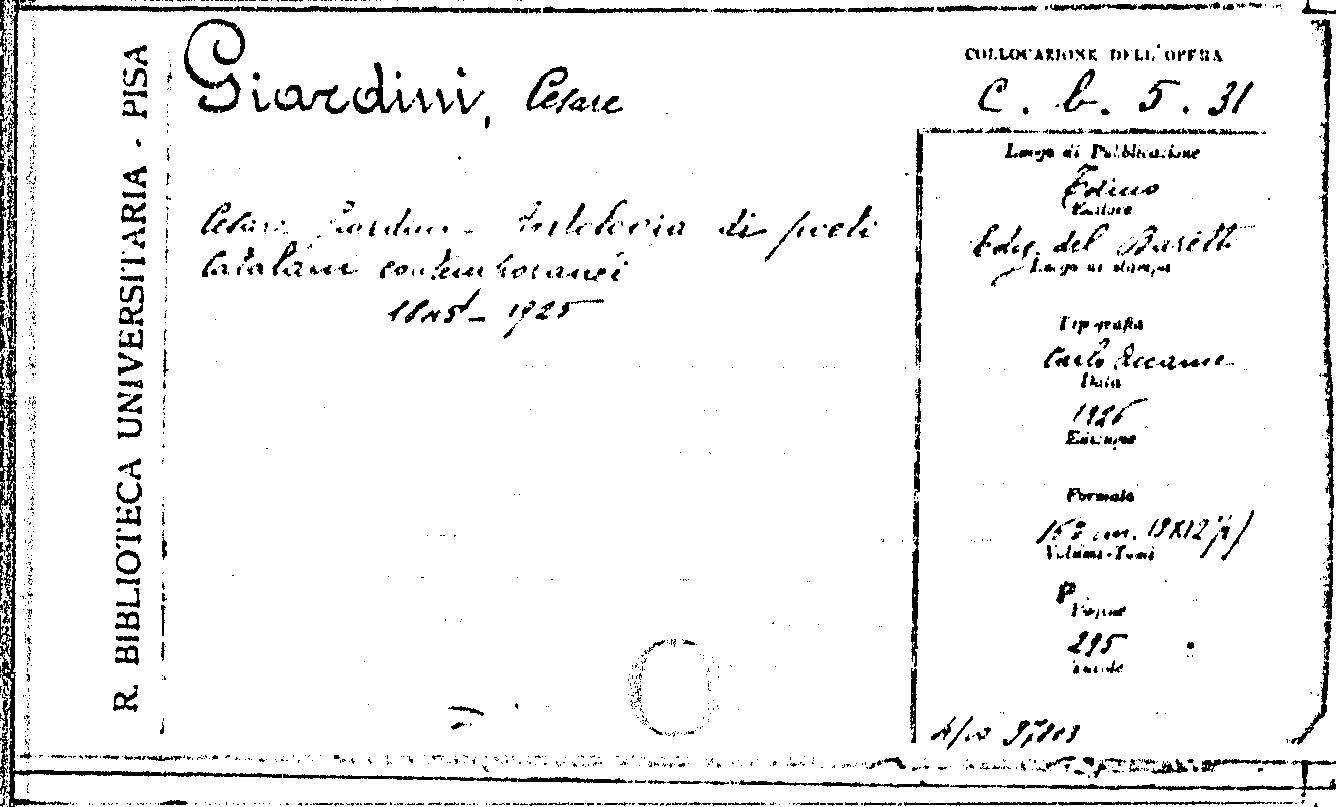 R. BIBLIOTECA UNIVERSITARIA - PISA
Giardini, Cesare
Cesare Giardini - Antologia di poeti
catalani contemporanei
1845 - 1925
COLLOCAZIONE DELL'OPERA
C. b. 5. 31
Luogo di Pubblicazione
Torino
Editore
Ediz. del Baretti
Luogo di stampa
Tipografia
Carlo Accame
Data
1926
Edizione
Formato
16º cm. 18X12 ½)
Volumi-Tomi
P.
Pagine
295
Tavole